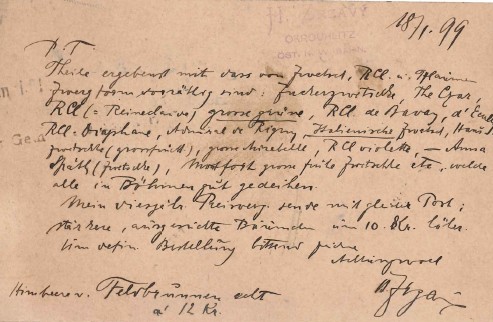 18/1. 99
P. T
Theile ergebenst mit dass von Zwetsch, RCl. u. Pflaumen
Zwergform vorräthig sind: Zuckerzwetschke, The Czar,
RCl (= Reineclaude) grosse grüne, RCl de Bavay, d'
RCl = Diaphane, Admiral de Rigny, Italienische Zwetsch, Haus
zwetschke (grossfrücht), grosse Mirabelle, RCl violette, — Anna
Späth (Zwetschke), Montfort grosse frühe Zwetschke etc, welche
alle in Böhmen gut gedeihen.
Mein diesjähr. Preisverz. sende mit gleicher Post;
stärkere, ausgesuchte Bäumchen um 10 Kr. höher.
Um defin. Bestellung bittend zeichne
Achtungsvoll
Himbeere v. Feldbrunnen echt
à 12 Kr.